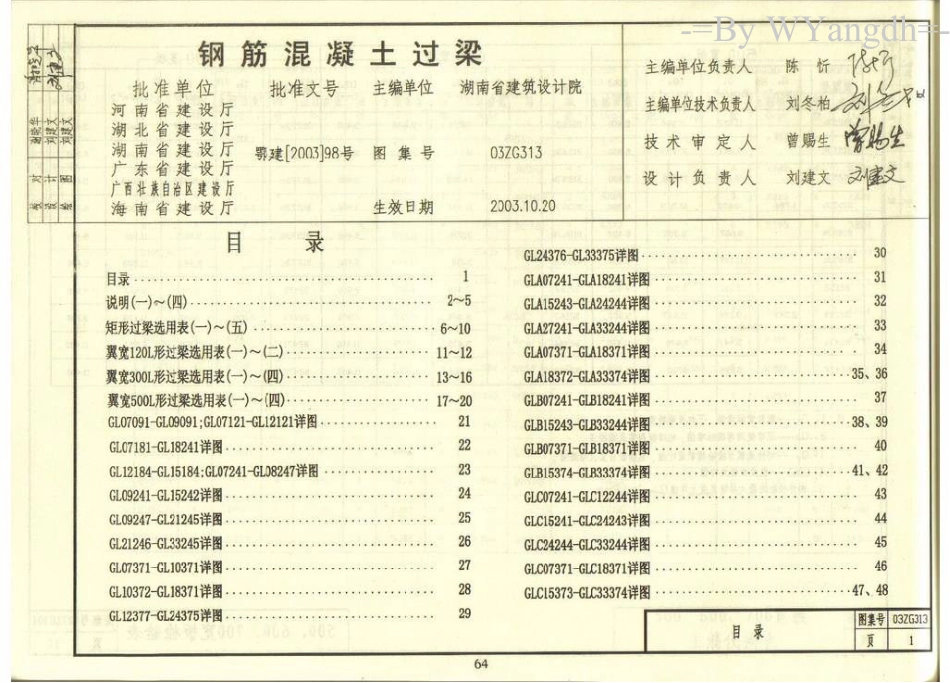 -=By WYangdh=-
钢筋混凝土过梁
批准单位 批准文号 主编单位 湖南省建筑设计院
河南省建设厅
湖北省建设厅
湖南省建设厅 鄂建[2003]98号 图集号 03ZG313
广东省建设厅
广西壮族自治区建设厅
海南省建设厅 生效日期 2003.10.20
主编单位负责人 陈衍
主编单位技术负责人 刘冬柏
技术审定人 曾赐生
设计负责人 刘建文
目录
目录 1
说明(一)~(四) 2~5
矩形过梁选用表(一)~(五) 6~10
翼宽120L形过梁选用表(一)~(二) 11~12
翼宽300L形过梁选用表(一)~(四) 13~16
翼宽500L形过梁选用表(一)~(四) 17~20
GL07091-GL09091;GL07121-GL12121详图 21
GL07181-GL18241详图 22
GL12184-GL15184;GL07241-GL08247详图 23
GL09241-GL15242详图 24
GL09247-GL21245详图 25
GL21246-GL33245详图 26
GL07371-GL10371详图 27
GL10372-GL18371详图 28
GL12377-GL24375详图 29
GL24376-GL33375详图 30
GLA07241-GLA18241详图 31
GLA15243-GLA24244详图 32
GLA27241-GLA33244详图 33
GLA07371-GLA18371详图 34
GLA18372-GLA33374详图 35、36
GLB07241-GLB18241详图 37
GLB15243-GLB33244详图 38、39
GLB07371-GLB18371详图 40
GLB15374-GLB33374详图 41、42
GLC07241-GLC12244详图 43
GLC15241-GLC24243详图 44
GLC24244-GLC33244详图 45
GLC07371-GLC18371详图 46
GLC15373-GLC33374详图 47、48
目录 图集号 03ZG313
页 1
64